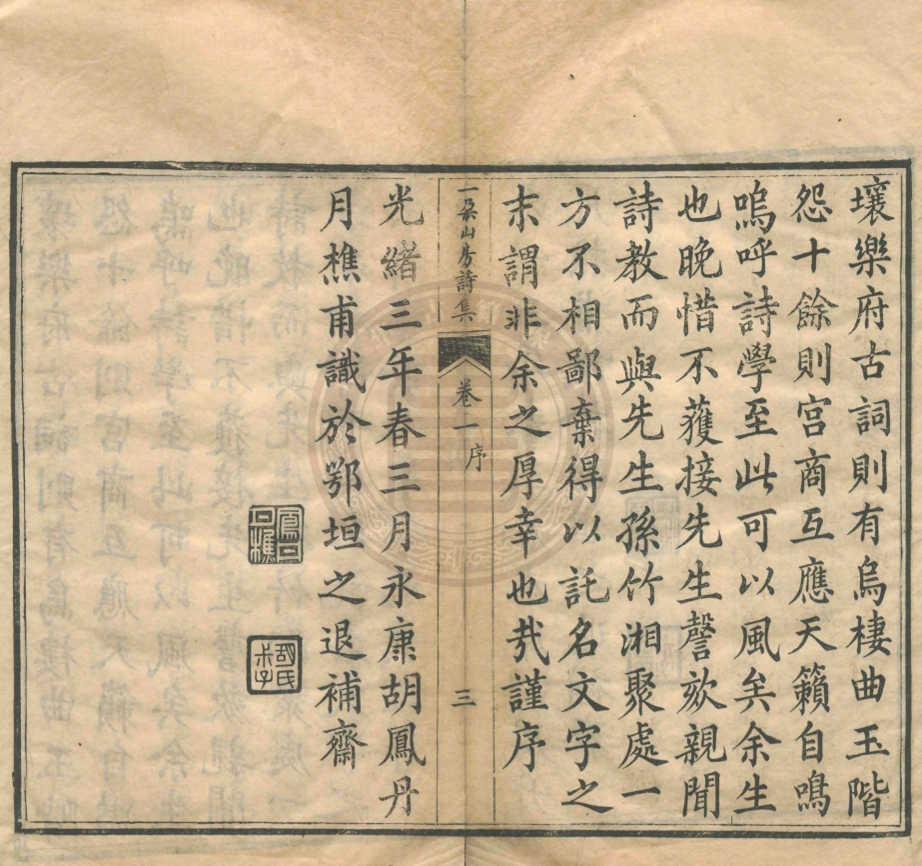 壤樂府古詞則有烏棲曲玉階
怨十餘則宮商互應天籟自鳴
嗚呼詩學至此可以風矣余生
也晚惜不獲接先生謦欬親聞
詩教而與先生孫竹湘聚處一
方不相鄙棄得以託名文字之
末謂非余之厚幸也㢤謹序
一朶山房詩集
卷一
序
三
光緒三年春三月永康胡鳳丹
月樵甫識於鄂垣之退補齋